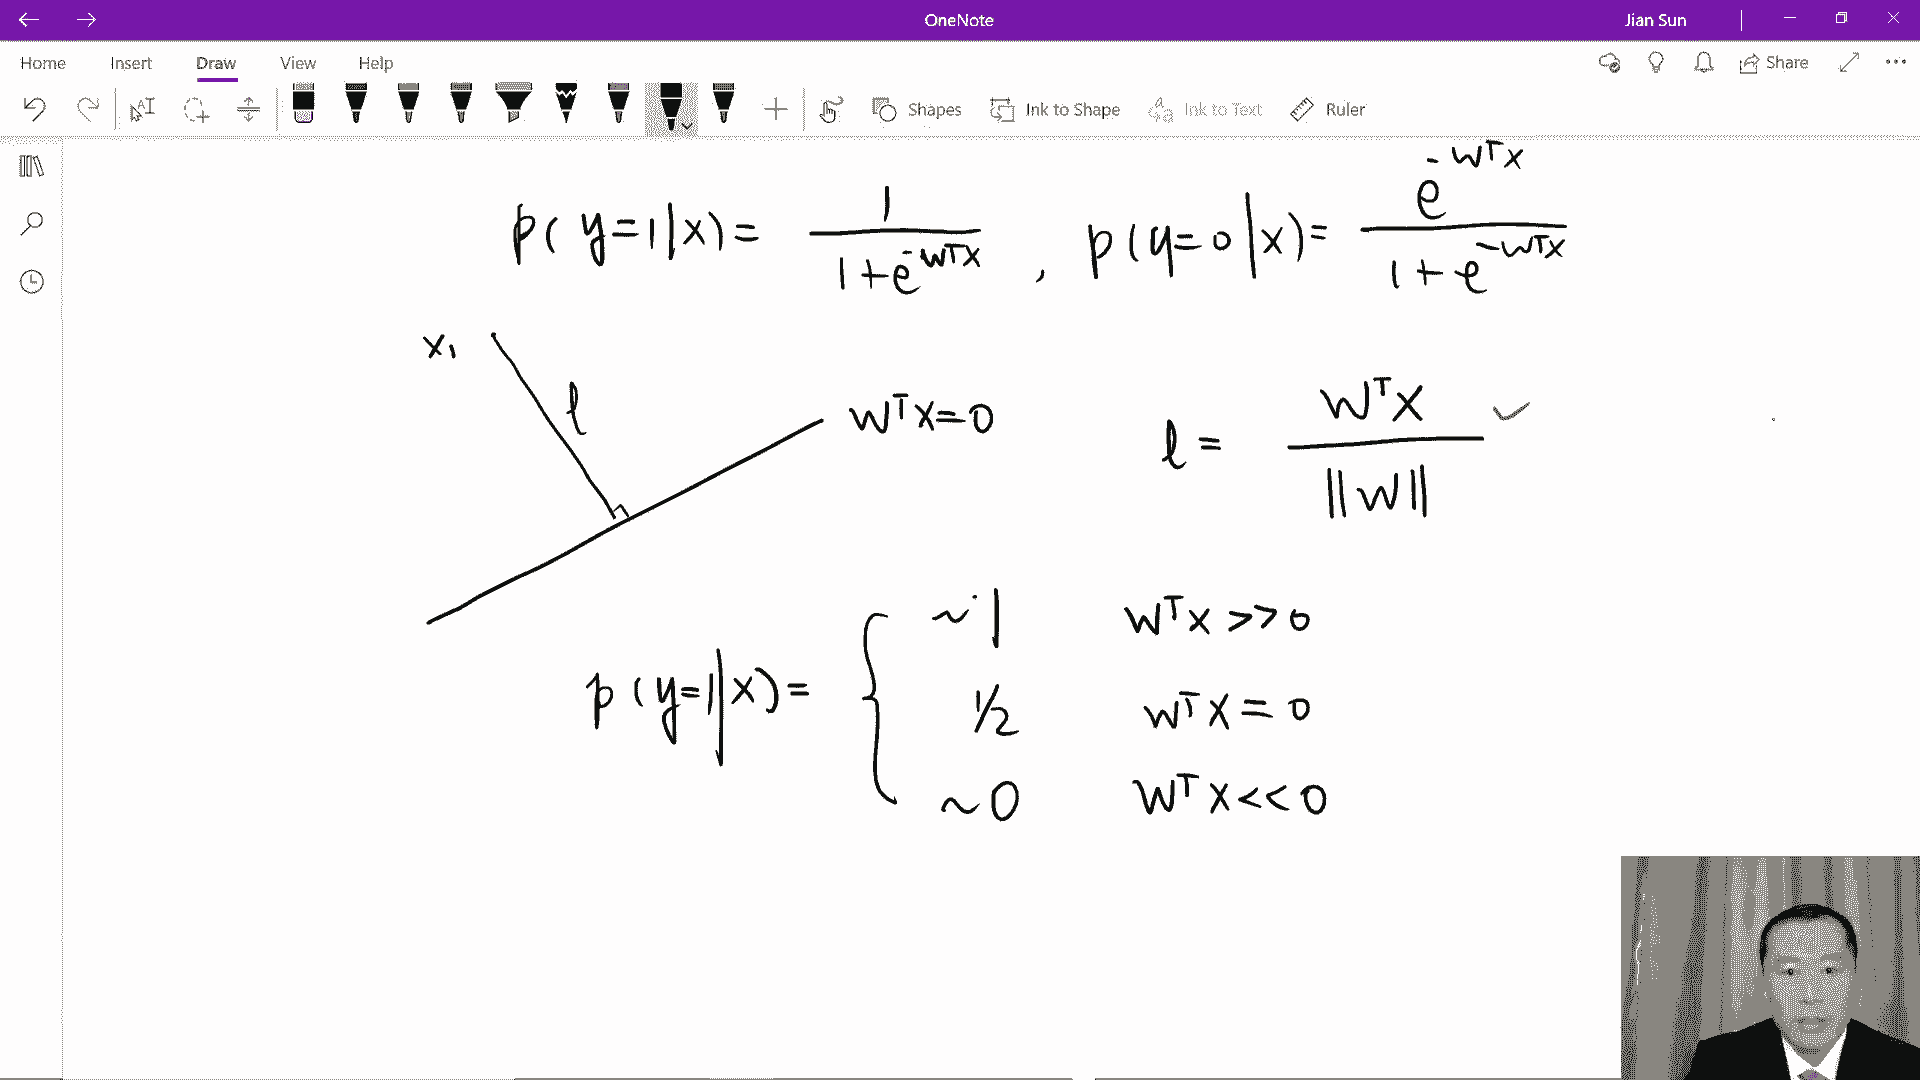 OneNote
Jian Sun
Home Insert Draw View Help
Share
Shapes Ink to Shape Ink to Text Ruler
p(y=1|x) = 1 / (1+e^{-w^T x}) , p(y=0|x) = e^{-w^T x} / (1+e^{-w^T x})
x₁
l
w^T x=0
l = w^T x / ||w|| ✓
~1 w^T x >> 0
p(y=1|x) = { 1/2 w^T x = 0
~0 w^T x << 0